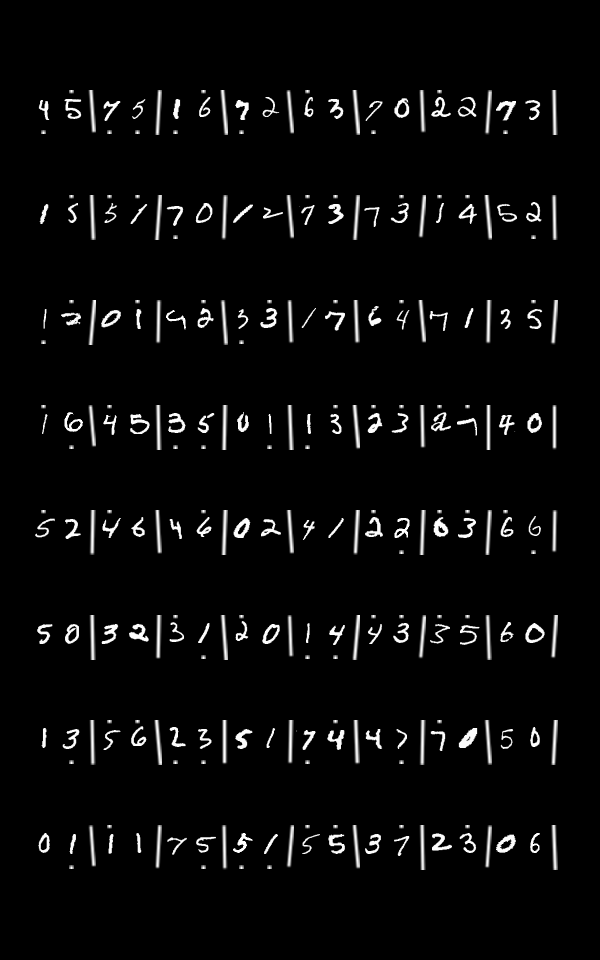 4 5 | 7 5 | 1 6 | 7 2 | 6 3 | 7 0 | 2 2 | 7 3 |
1 5 | 5 1 | 7 0 | 1 2 | 7 3 | 7 3 | 1 4 | 5 2 |
1 2 | 0 1 | 5 2 | 3 3 | 1 7 | 6 4 | 7 1 | 3 5 |
1 6 | 4 5 | 3 5 | 0 1 | 1 3 | 2 3 | 2 7 | 4 0 |
5 2 | 4 6 | 4 6 | 0 2 | 4 1 | 2 2 | 6 3 | 6 6 |
5 0 | 3 2 | 3 1 | 2 0 | 1 4 | 4 3 | 3 5 | 6 0 |
1 3 | 5 6 | 2 3 | 5 1 | 7 4 | 4 7 | 7 0 | 5 0 |
0 1 | 1 1 | 7 5 | 5 1 | 5 5 | 3 7 | 2 3 | 0 6 |